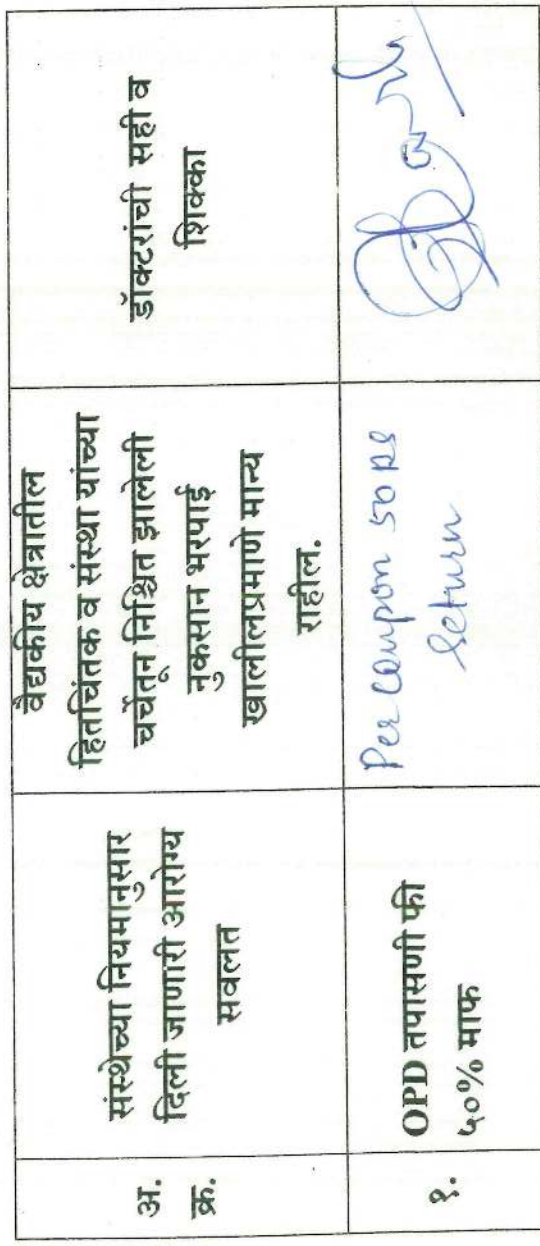 अ.
क्र.
संस्थेच्या नियमानुसार
दिली जाणारी आरोग्य
सवलत
वैद्यकीय क्षेत्रातील
हितचिंतक व संस्था यांच्या
चर्चेतून निश्चित झालेली
नुकसान भरपाई
खालीलप्रमाणे मान्य
राहील.
डॉक्टरांची सही व
शिक्का
१.
OPD तपासणी फी
५०% माफ
Per Coupon 50 RS
return